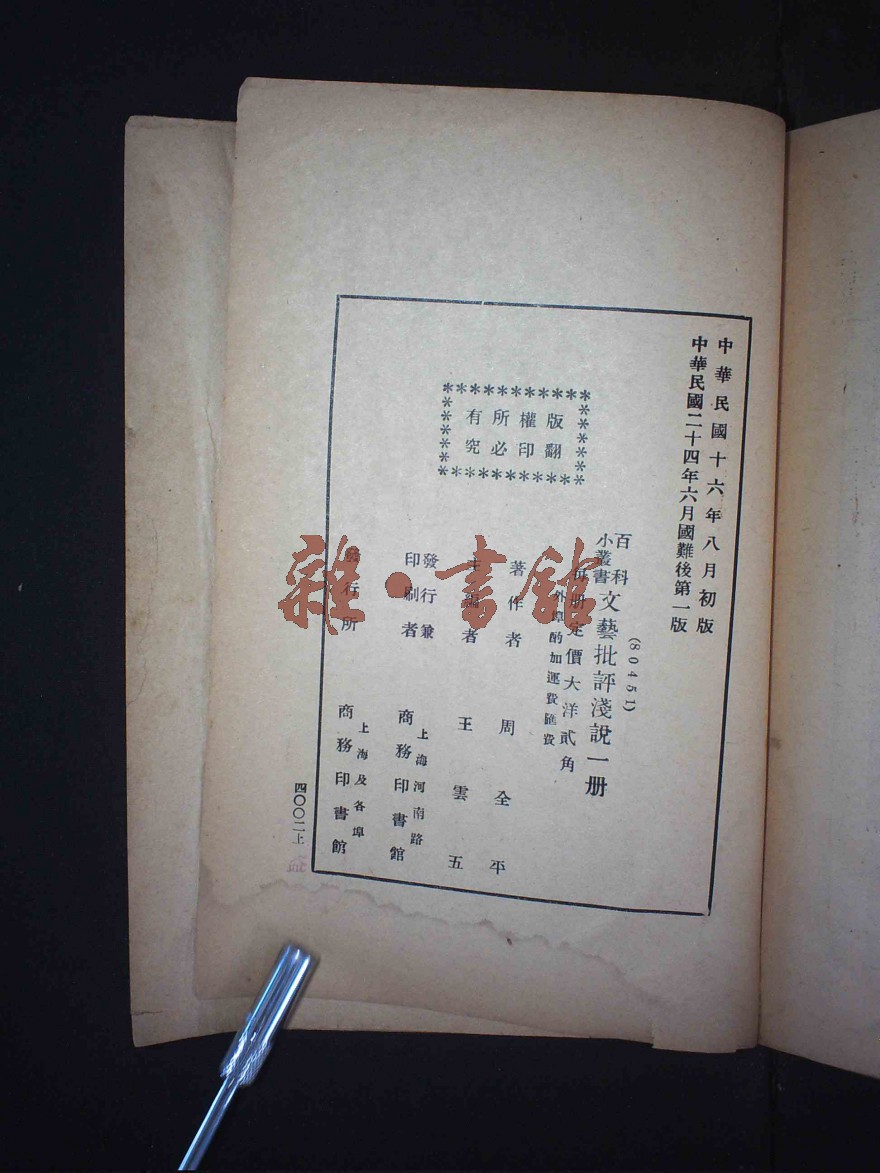 中華民國十六年八月初版
中華民國二十四年六月國難後第一版
(80451)
百科
小叢書
文藝批評淺說一册
每册定價大洋貳角
外埠酌加運費匯費
版權所有
翻印必究
著作者 周全平
主編者 王雲五
發行兼
印刷者
上海河南路
商務印書館
發行所
上海及各埠
商務印書館
四〇〇二上
雜·書館